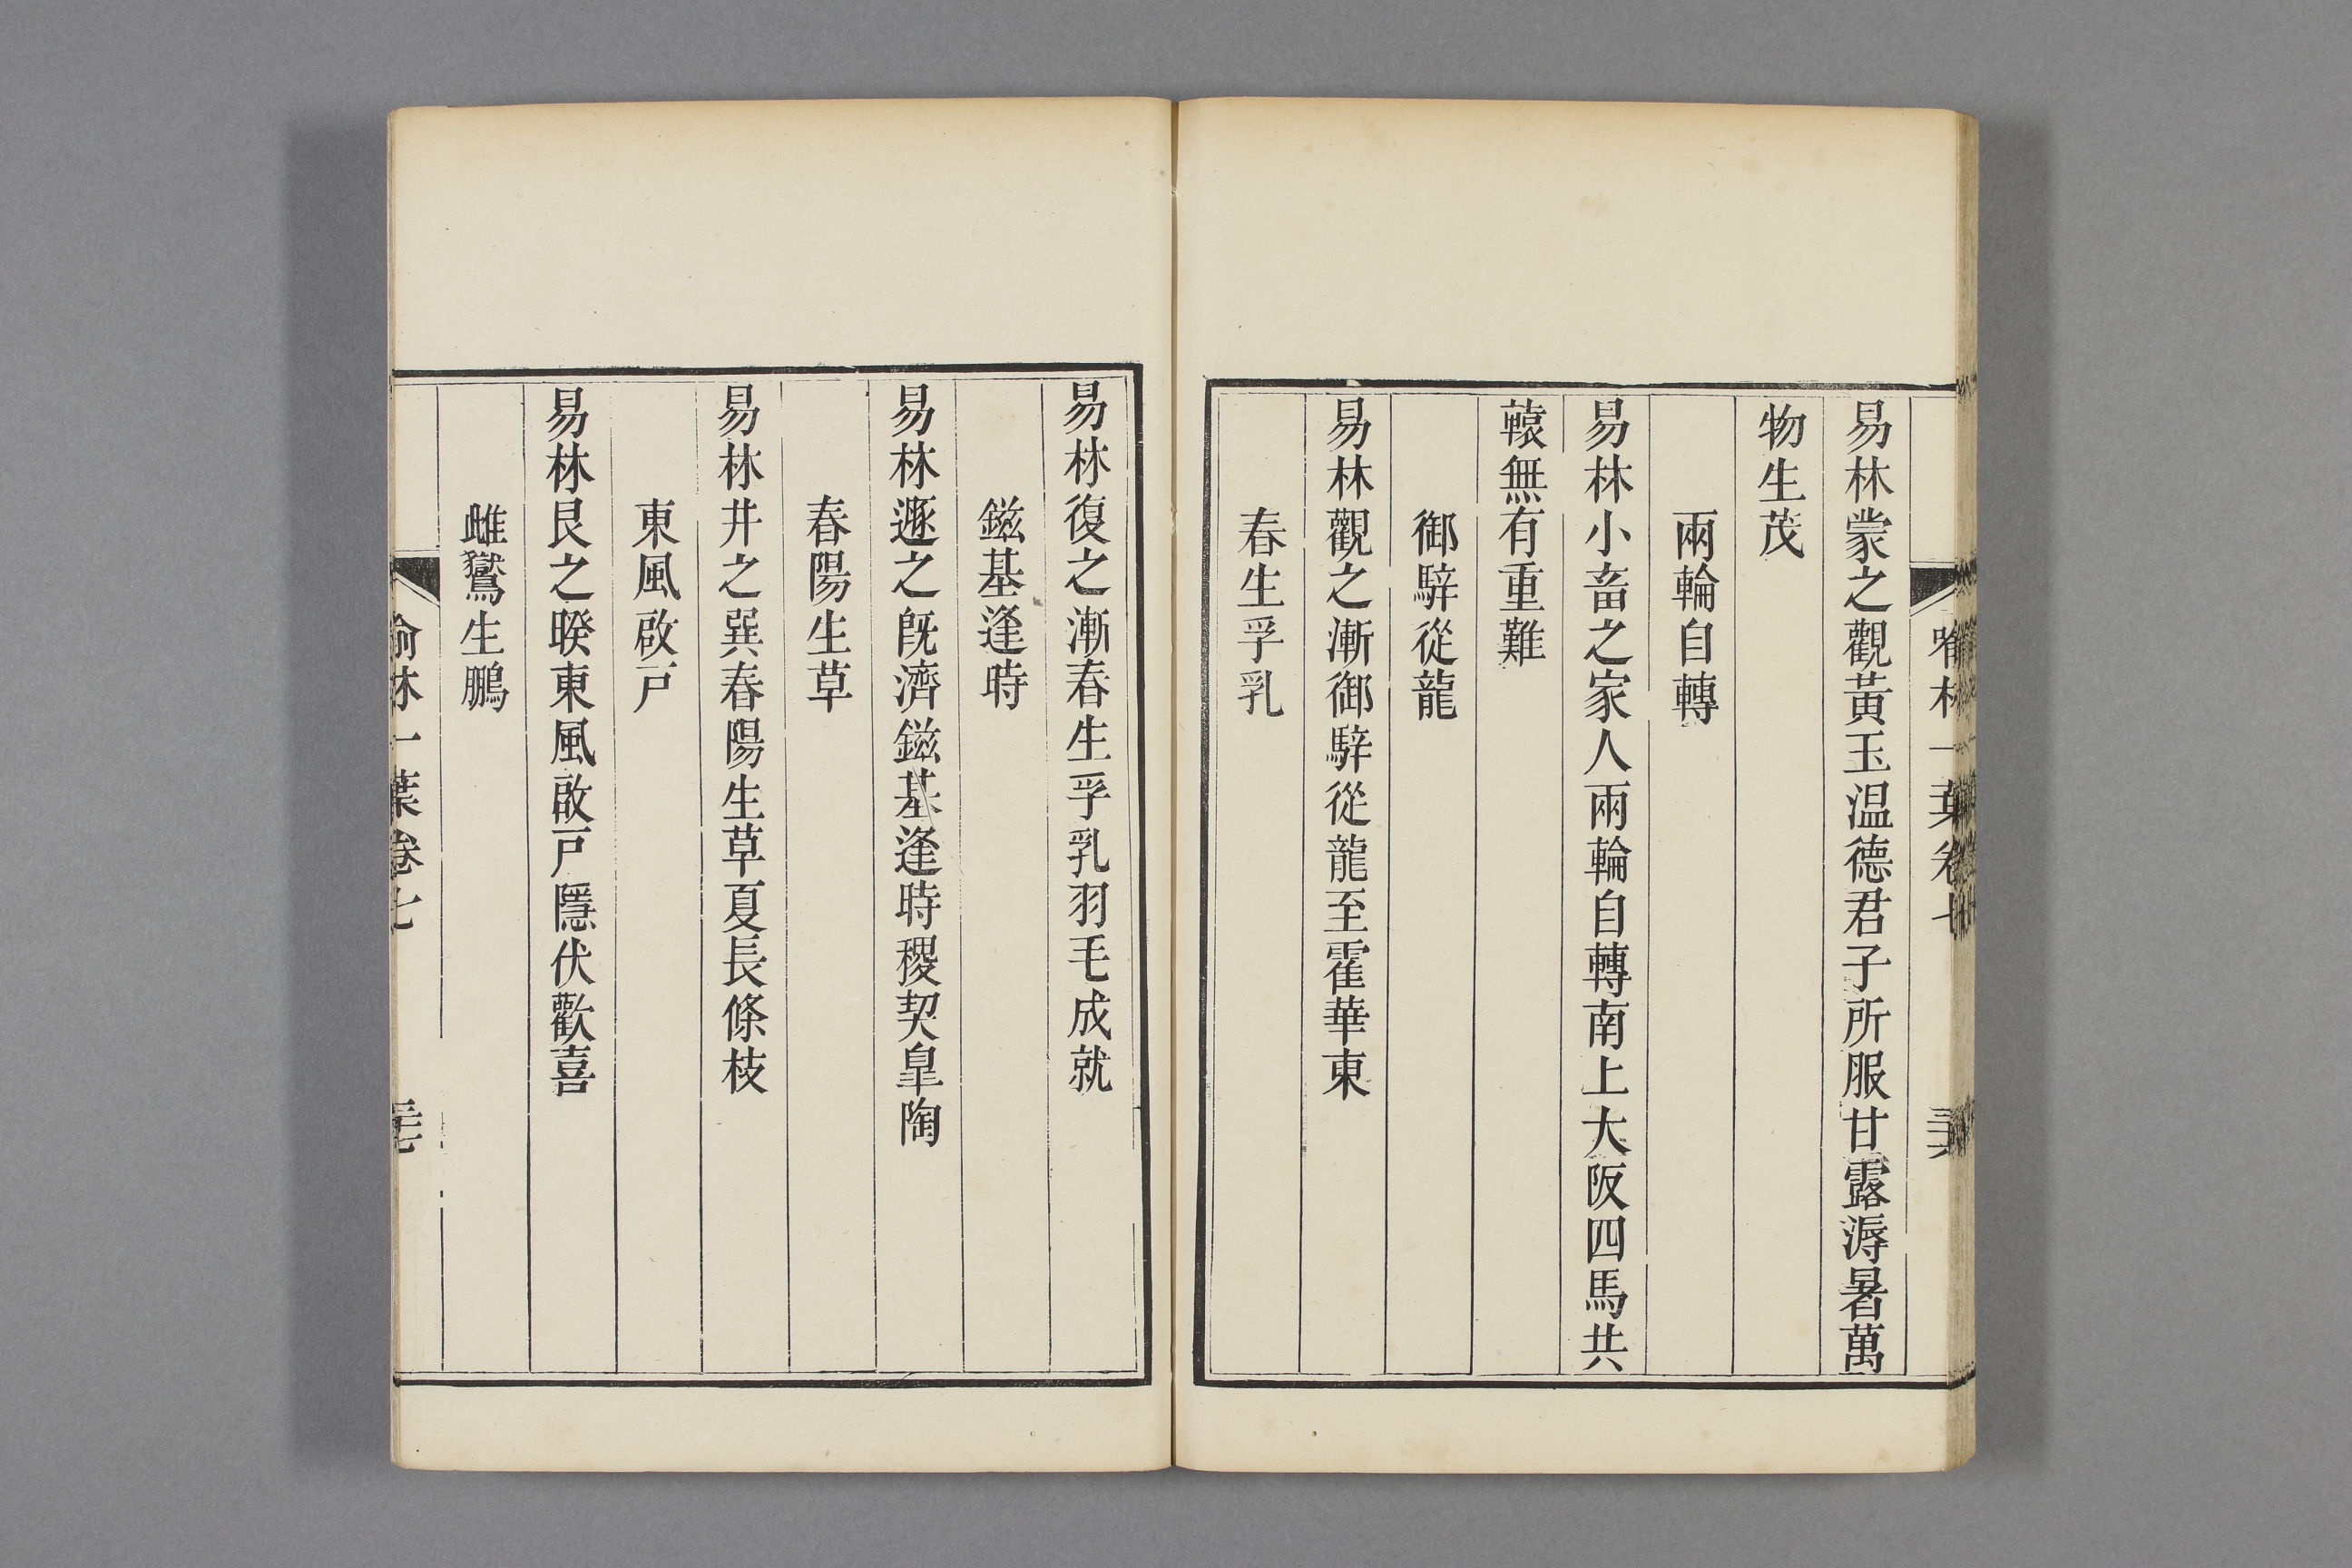 易林蒙之觀黃玉温德君子所服甘露溽暑萬
物生茂
兩輪自轉
易林小畜之家人兩輪自轉南上大阪四馬共
轅無有重難
御騂從龍
易林觀之漸御騂從龍至霍華東
春生孚乳
易林復之漸春生孚乳羽毛成就
鎡基逢時
易林遯之旣濟鎡基逢時稷契皐陶
春陽生草
易林井之巽春陽生草夏長條枝
東風啟戸
易林艮之睽東風啟戸隱伏歡喜
雌鷽生鵬
喻林一葉卷七